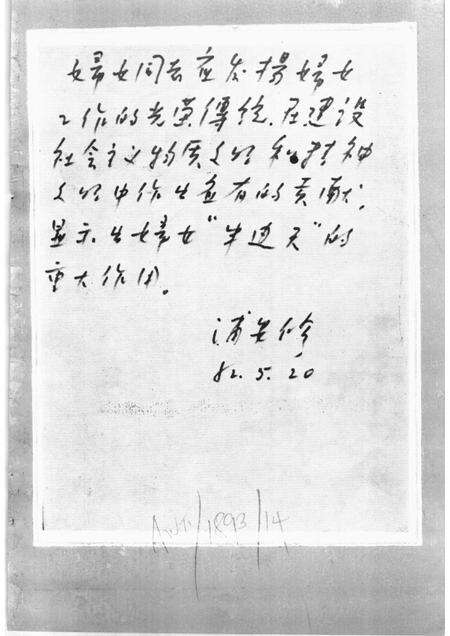 婦女同志应发揚婦女
工作的光荣傳统,在建设
社会主义物质文明和精神
文明中作出应有的贡献,
显示出婦女"半边天"的
重大作用。
浦安修
82.5.20
/1893/14